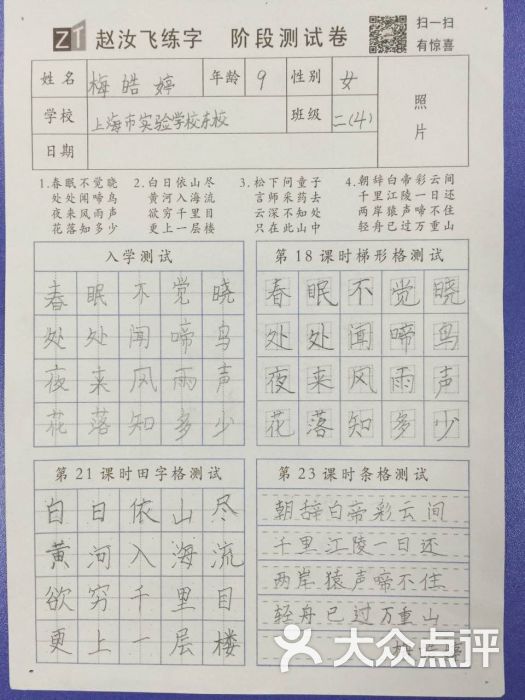 ZT 赵汝飞练字 阶段测试卷 扫一扫
有惊喜
姓名 梅皓婷 年龄 9 性别 女 照片
学校 上海市实验学校东校 班级 二(4)
日期
1.春眠不觉晓 2.白日依山尽 3.松下问童子 4.朝辞白帝彩云间
处处闻啼鸟 黄河入海流 言师采药去 千里江陵一日还
夜来风雨声 欲穷千里目 云深不知处 两岸猿声啼不住
花落知多少 更上一层楼 只在此山中 轻舟已过万重山
入学测试
春眠不觉晓
处处闻啼鸟
夜来风雨声
花落知多少
第18课时梯形格测试
春眠不觉晓
处处闻啼鸟
夜来风雨声
花落知多少
第21课时田字格测试
白日依山尽
黄河入海流
欲穷千里目
更上一层楼
第23课时条格测试
朝辞白帝彩云间
千里江陵一日还
两岸猿声啼不住
轻舟已过万重山
大众点评